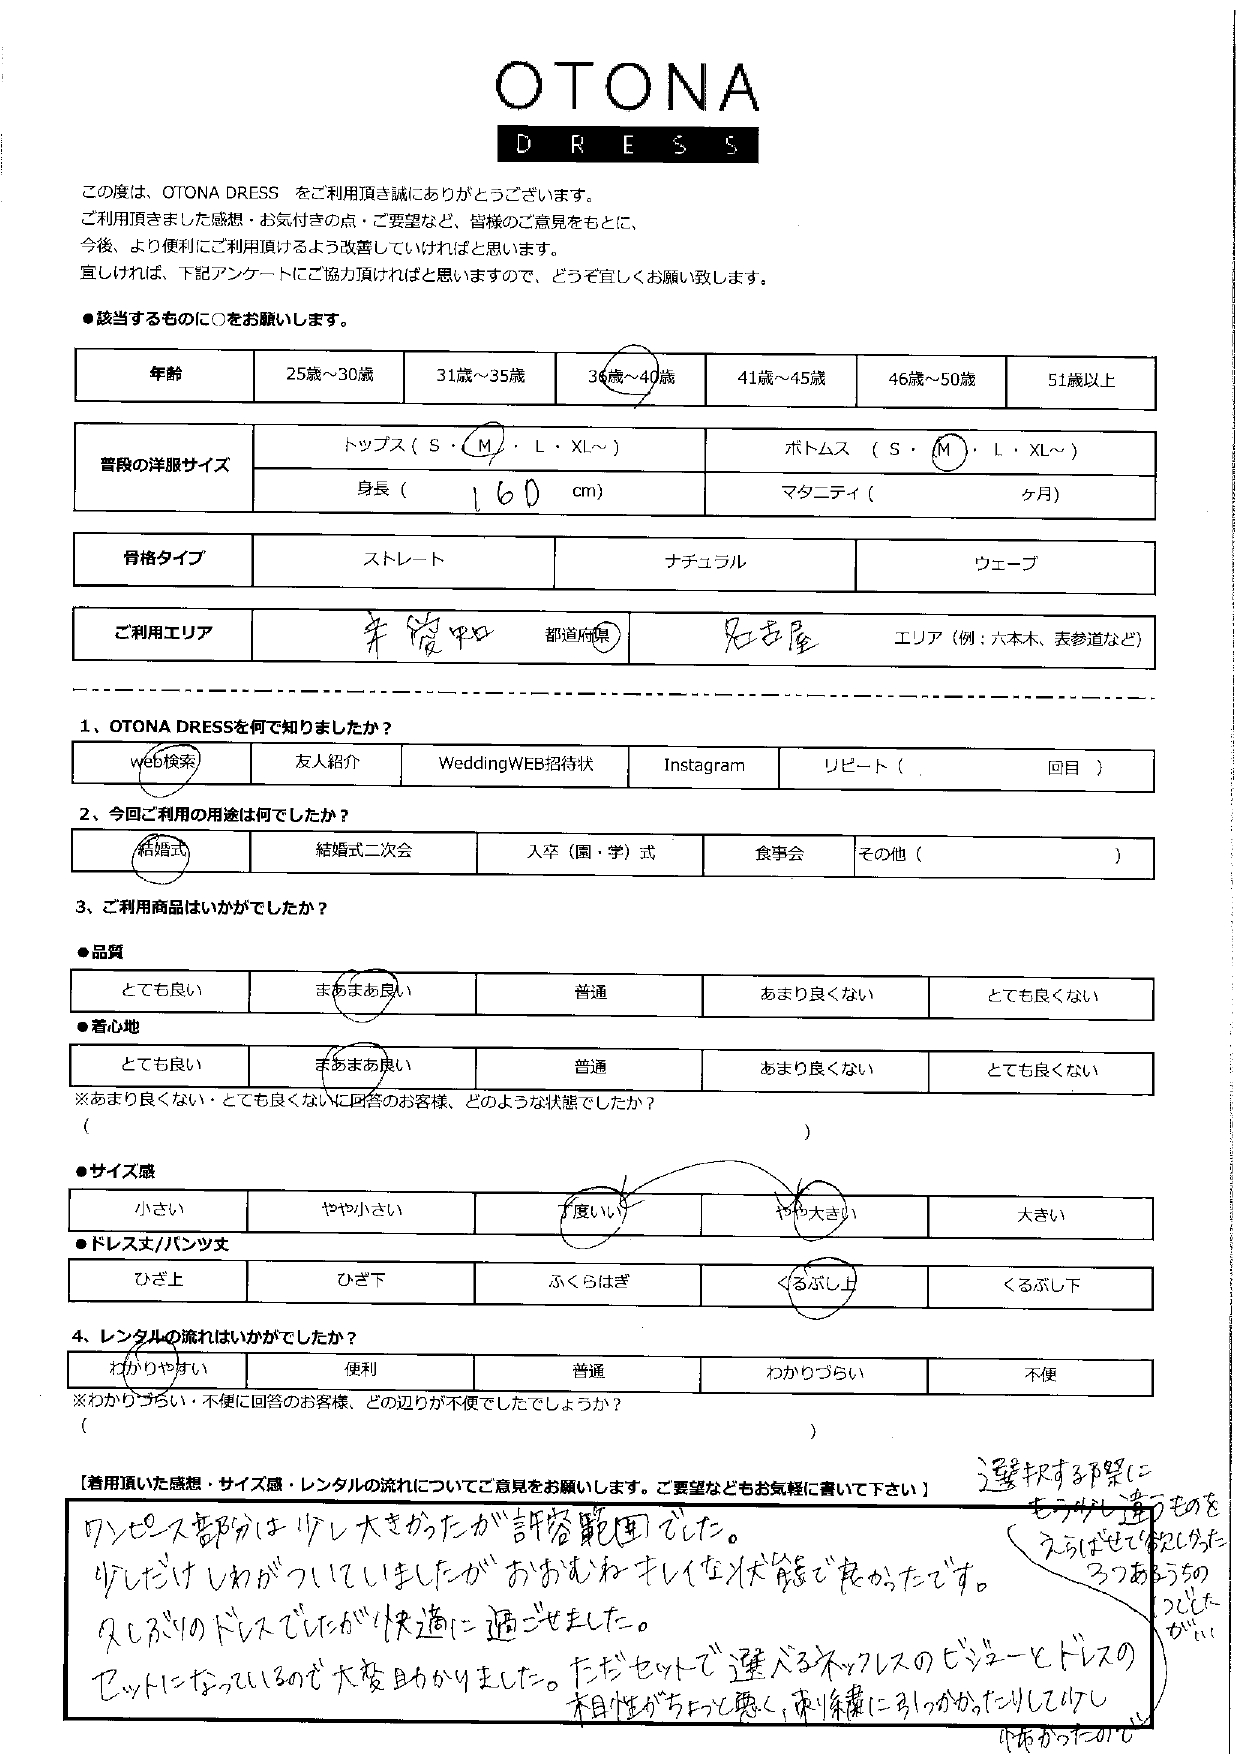 OTONA
DRESS
この度は、OTONA DRESS をご利用頂き誠にありがとうございます。
ご利用頂きました感想・お気付きの点・ご要望など、皆様のご意見をもとに、
今後、より便利にご利用頂けるよう改善していければと思います。
宜しければ、下記アンケートにご協力頂ければと思いますので、どうぞ宜しくお願い致します。
●該当するものに○をお願いします。
年齢 25歳～30歳 31歳～35歳 36歳～40歳 41歳～45歳 46歳～50歳 51歳以上
普段の洋服サイズ トップス ( S ・ M ・ L ・ XL～ ) ボトムス ( S ・ M ・ L ・ XL～ )
身長 ( 160 cm) マタニティ ( ヶ月)
骨格タイプ ストレート ナチュラル ウェーブ
ご利用エリア 愛知 都道府県 名古屋 エリア (例：六本木、表参道など)
1、OTONA DRESSを何で知りましたか？
web検索 友人紹介 WeddingWEB招待状 Instagram リピート ( 回目 )
2、今回ご利用の用途は何でしたか？
結婚式 結婚式二次会 入卒（園・学）式 食事会 その他 ( )
3、ご利用商品はいかがでしたか？
●品質
とても良い まあまあ良い 普通 あまり良くない とても良くない
●着心地
とても良い まあまあ良い 普通 あまり良くない とても良くない
※あまり良くない・とても良くないに回答のお客様、どのような状態でしたか？
( )
●サイズ感
小さい やや小さい 丁度いい やや大きい 大きい
●ドレス丈/パンツ丈
ひざ上 ひざ下 ふくらはぎ くるぶし上 くるぶし下
4、レンタルの流れはいかがでしたか？
わかりやすい 便利 普通 わかりづらい 不便
※わかりづらい・不便に回答のお客様、どの辺りが不便でしたでしょうか？
( )
【着用頂いた感想・サイズ感・レンタルの流れについてご意見をお願いします。ご要望などもお気軽に書いて下さい】
ワンピース部分は少し大きかったが許容範囲でした。
少しだけしわがついていましたがおおむねキレイな状態で良かったです。
久しぶりのドレスでしたが快適に過ごせました。
セットになっているので大変助かりました。ただセットで選べるネックレスのビジューとドレスの
相性がちょっと悪く、刺繍に引っかかったりして少し
怖かったので
選択する際に
もう少し違うものを
えらばせて欲しかった
3つあるうちの